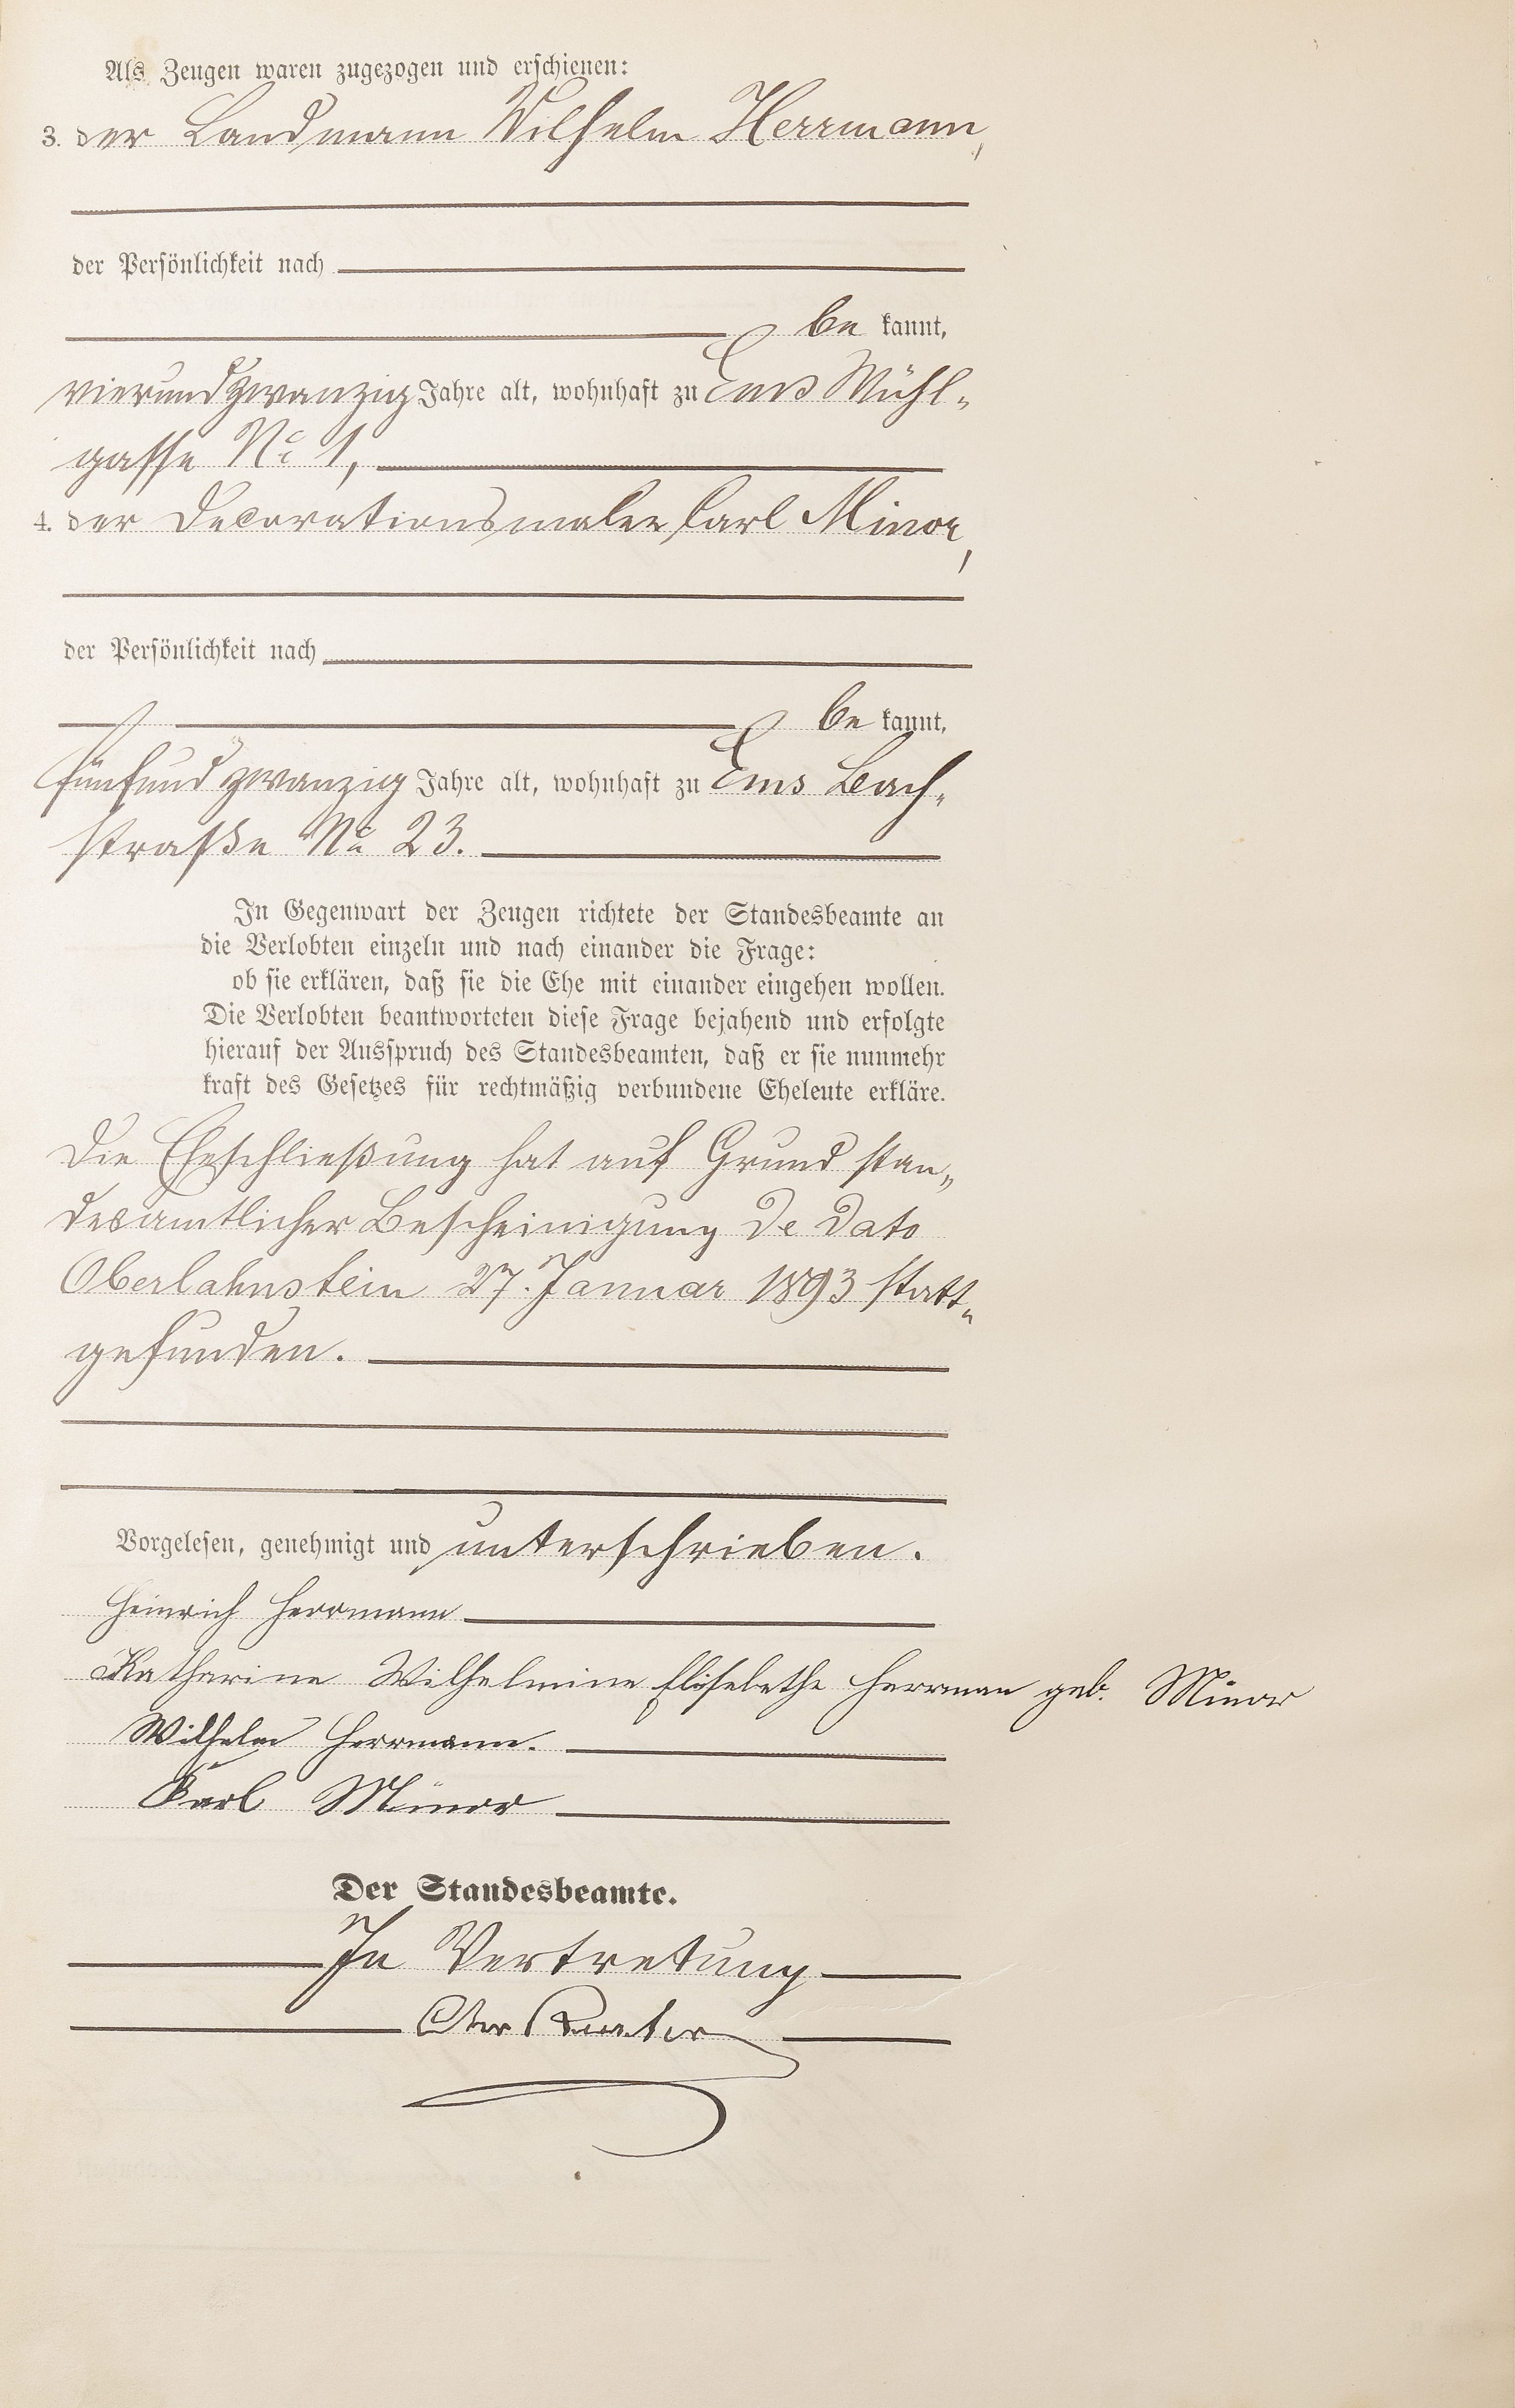 Als Zeugen waren zugezogen und erschienen:
3. der Landmann Wilhelm Herrmann,
der Persönlichkeit nach
be kannt,
vierundzwanzig Jahre alt, wohnhaft zu Ems Mühl-
gasse No 1,
4. der Decorationsmaler Carl Minor,
der Persönlichkeit nach
be kannt,
fünfundzwanzig Jahre alt, wohnhaft zu Ems Bach-
straße No 23.
In Gegenwart der Zeugen richtete der Standesbeamte an
die Verlobten einzeln und nach einander die Frage:
ob sie erklären, daß sie die Ehe mit einander eingehen wollen.
Die Verlobten beantworteten diese Frage bejahend und erfolgte
hierauf der Ausspruch des Standesbeamten, daß er sie nunmehr
kraft des Gesetzes für rechtmäßig verbundene Eheleute erkläre.
Die Eheschließung hat auf Grund stan-
desamtlicher Bescheinigung de dato
Oberlahnstein 27. Januar 1893 statt-
gefunden.
Vorgelesen, genehmigt und unterschrieben.
Heinrich Herrmann
Katharine Wilhelmine Elisebethe Herrman geb. Minor
Wilhelm Herrmann.
Karl Minor
Der Standesbeamte.
In Vertretung